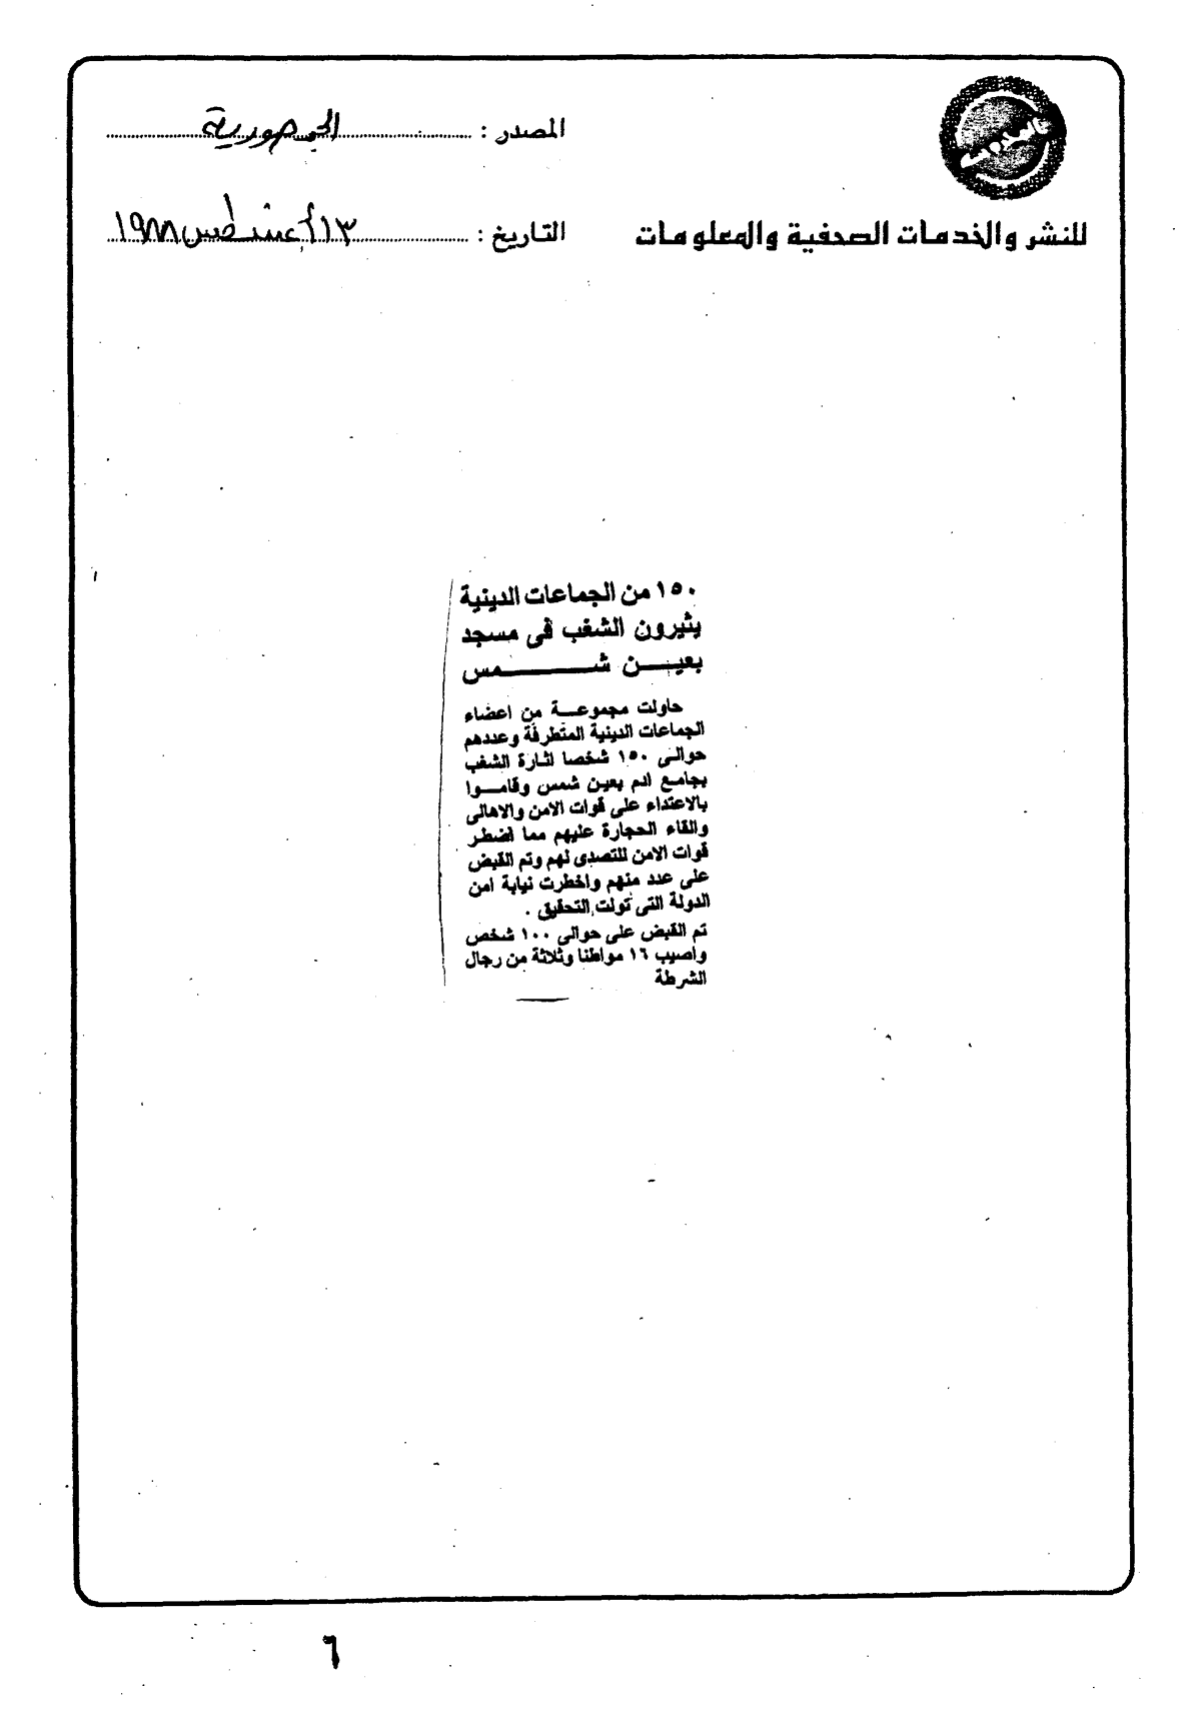 المصدر : الجمهورية
للنشر والخدمات الصحفية والمعلومات
التاريخ : ١٣ أغسطس ١٩٨٨
١٥٠ من الجماعات الدينية
يثيرون الشغب فى مسجد
بعيـــن شـــــــمس
حاولت مجموعـــة من اعضاء
الجماعات الدينية المتطرفة وعددهم
حوالى ١٥٠ شخصا اثارة الشغب
بجامع ادم بعين شمس وقامـــوا
بالاعتداء على قوات الامن والاهالى
والقاء الحجارة عليهم مما اضطر
قوات الامن للتصدى لهم وتم القبض
على عدد منهم واخطرت نيابة امن
الدولة التى تولت التحقيق .
تم القبض على حوالى ١٠٠ شخص
واصيب ١٦ مواطنا وثلاثة من رجال
الشرطة
٦